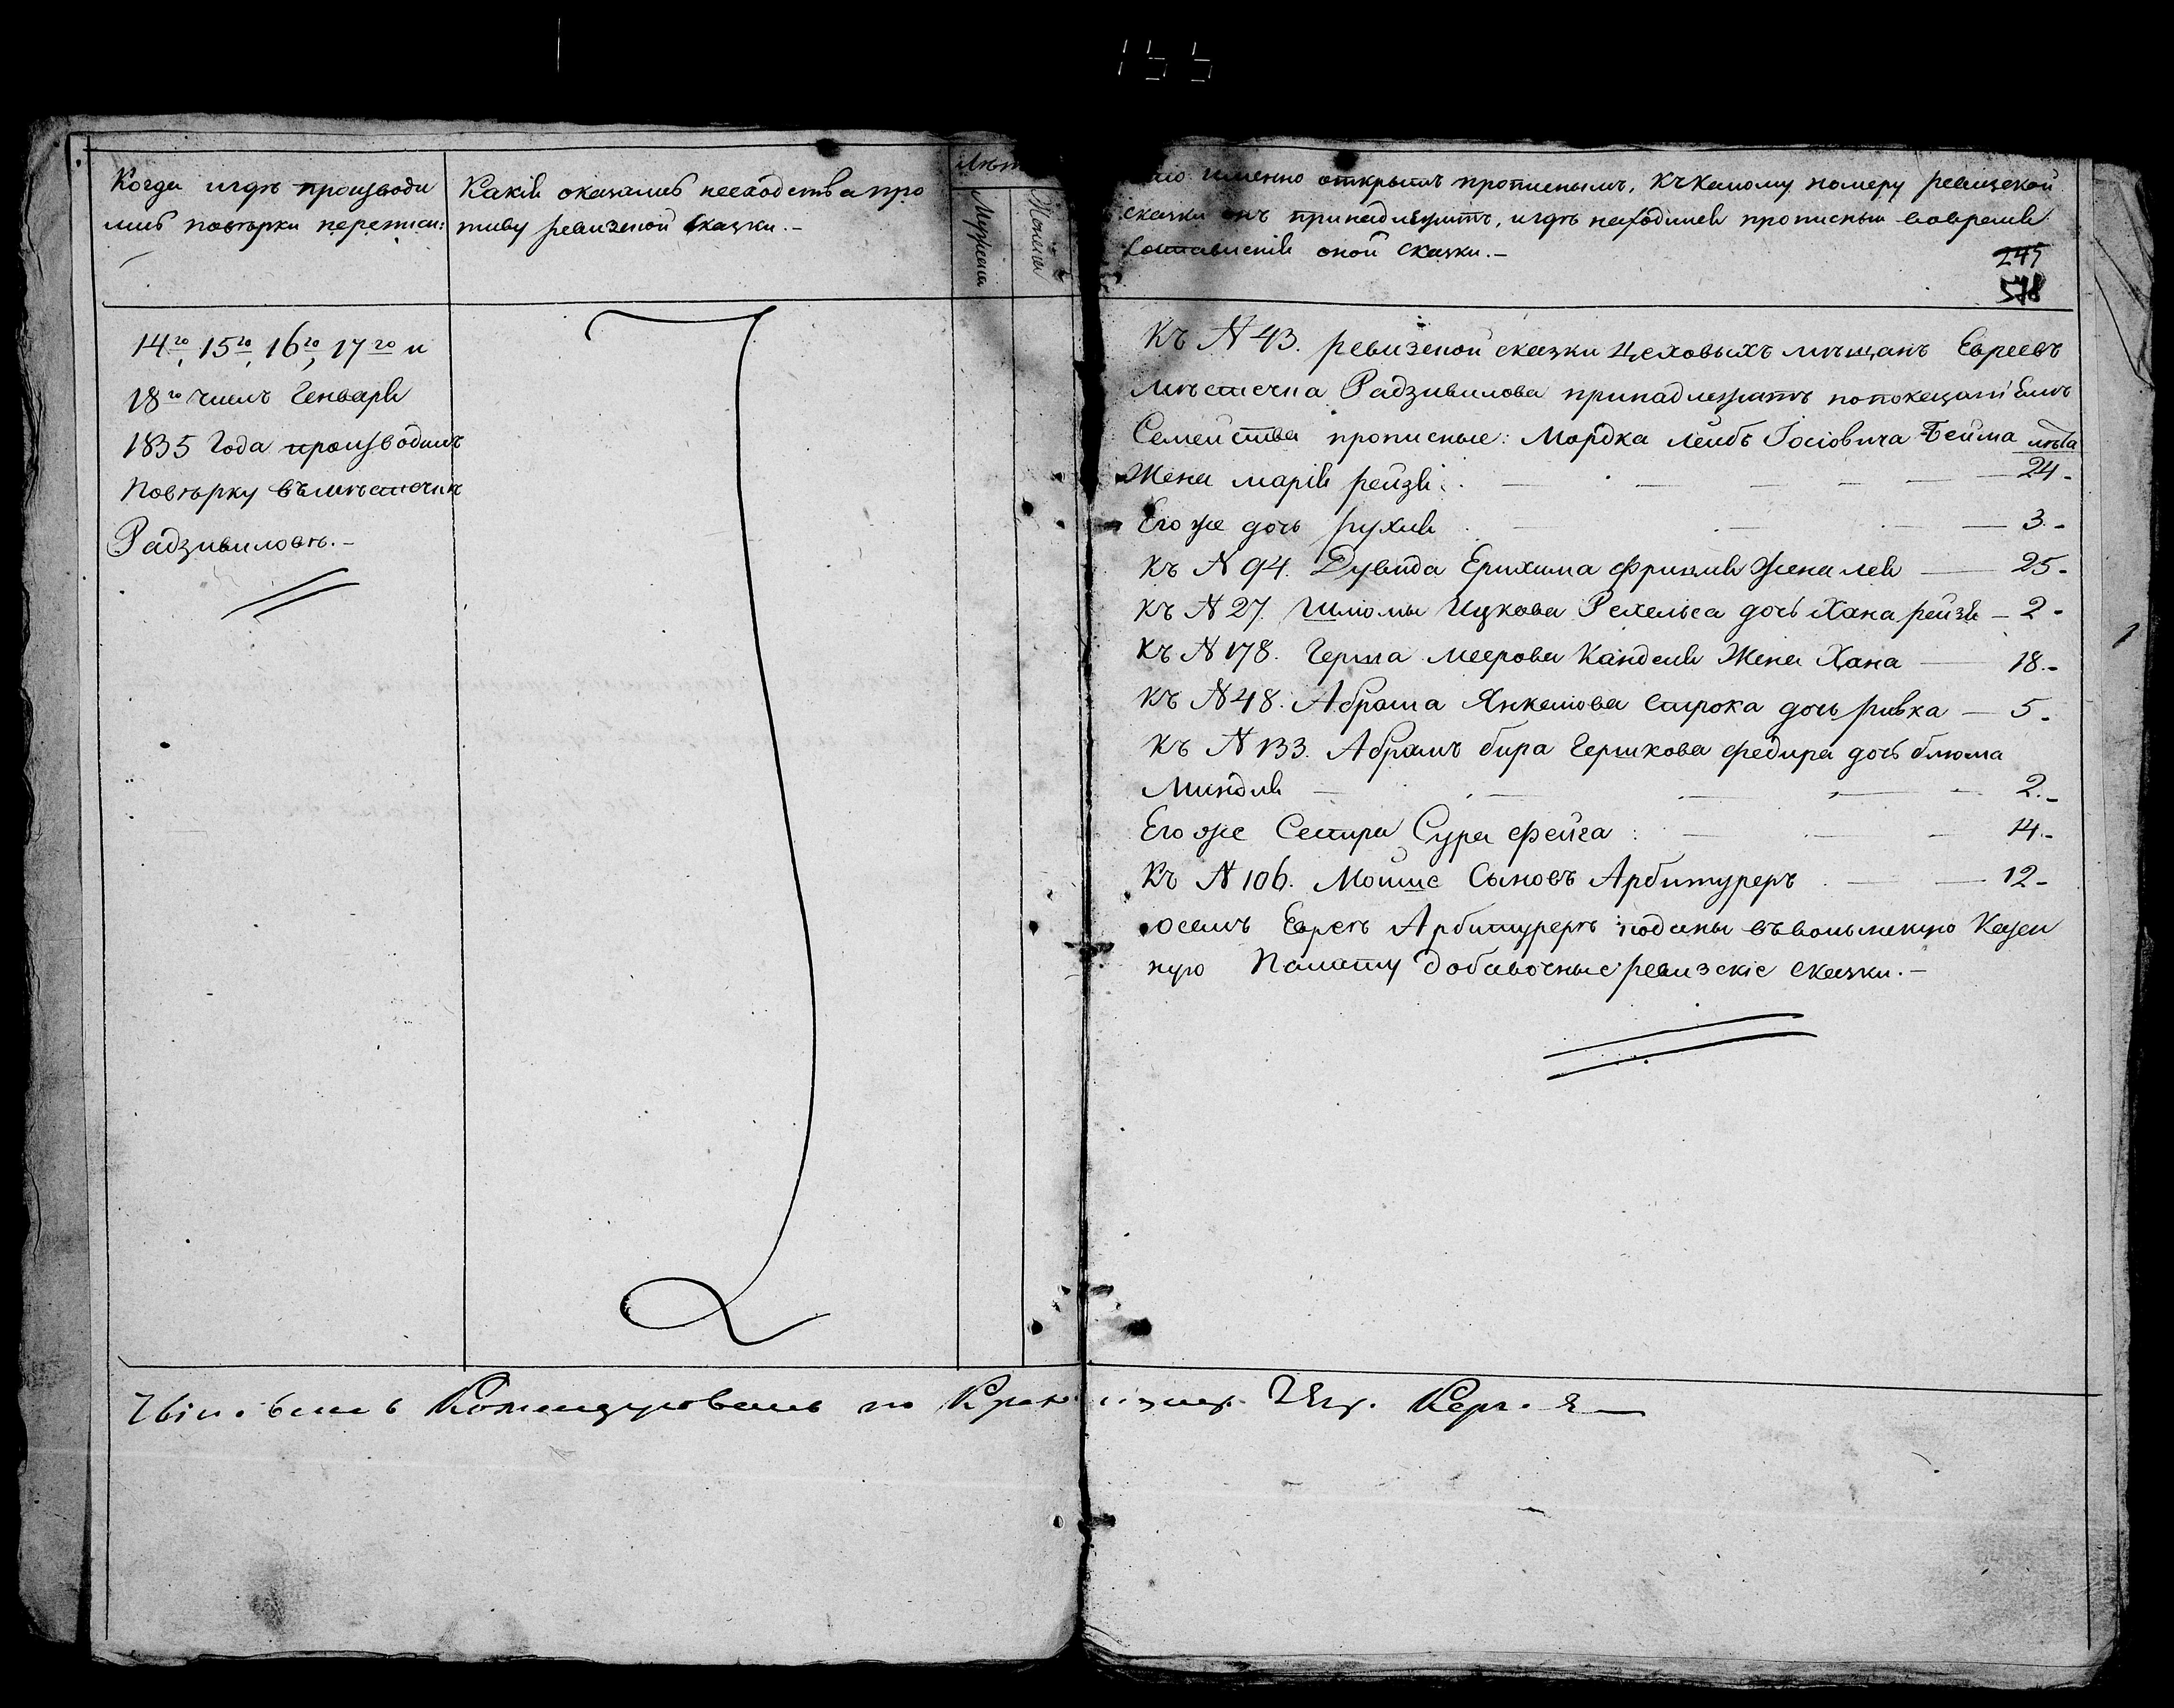 155
Когда и гдѣ производи
лись повѣрки переписи:
Какія оказались несходства про
тиву ревизской сказки.-
Лѣт
Мужеска
Женска
именно открытъ прописнымъ, къ какому номеру ревизской
сказки онъ принадлежитъ, и гдѣ находился прописныи вовремя
составленія оной сказки.-
245
578
14го, 15го, 16го, 17го и
18го числъ Генваря
1835 Года производилъ
повѣрку въ мѣстечкѣ
Радзивиловѣ.-
Къ N 43. ревизской сказки цеховыхъ мѣщанъ Евреевъ
мѣстечка Радзивилова принадлежатъ по показаніемъ
Семейства прописные: Мордка Лейбъ Іосіовича Бейма лѣта
Жена марія рейзя. 24-
Его же дочь рухля 3.-
Къ N 94. Дувида Ерихима Фришля жена лея 25-
Къ N 27. Шломы Ицкова Рехельса дочь Хана рейзя - 2-
Къ N 178. Герша Меерова Канделя Жена Хана 18.-
Къ N 48. Абрама Янкелова Сирока дочь ривка - 5.
Къ N 133. Абрамъ бира Гершкова федира дочь блюма
Миндля 2.-
Его же Сестра Сура фейга 14.-
Къ N 106. Мошие Сыновъ Арбитуреръ 12-
осемъ Еврея Арбитурера поданы въ волынскую Казен
ную Палату добавочные ревизскіе сказки.-
Командированъ по